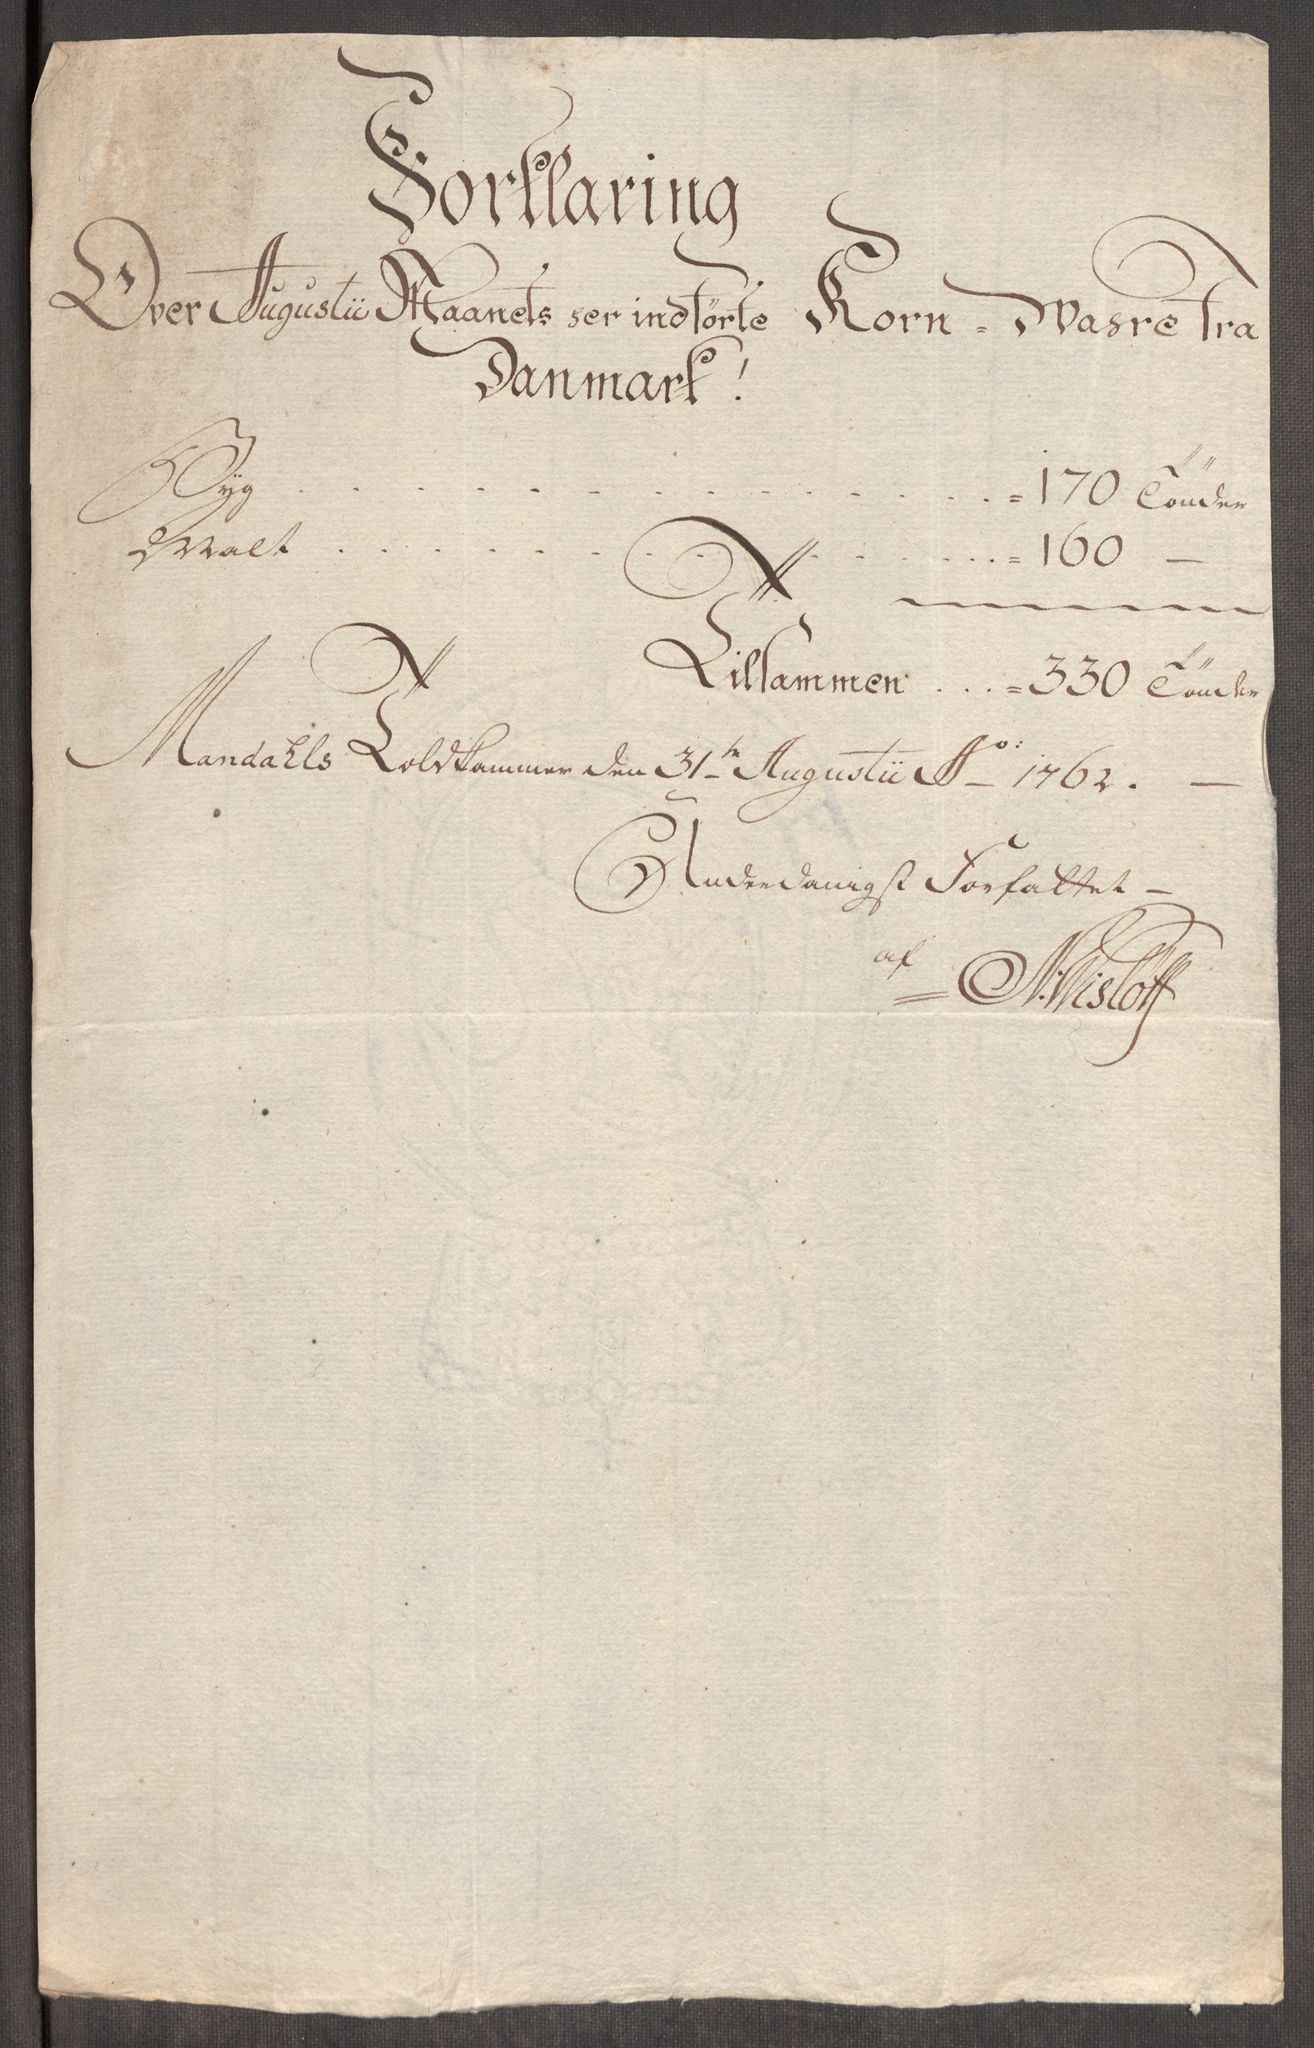 Forklaring
Over Augustii Maanets her indførte Korn = Vahre fra
Danmark!
Byg . . . . . . . . . . . . . = 170 Tönder
Malt . . . . . . . . . . . . . = 160 —
Tilsammen . . . = 330 Tönder
Mandahls Toldkammer den 31te Augustii Ao: 1762. —
Underdanigst Forfattet —
af N: Wisloff